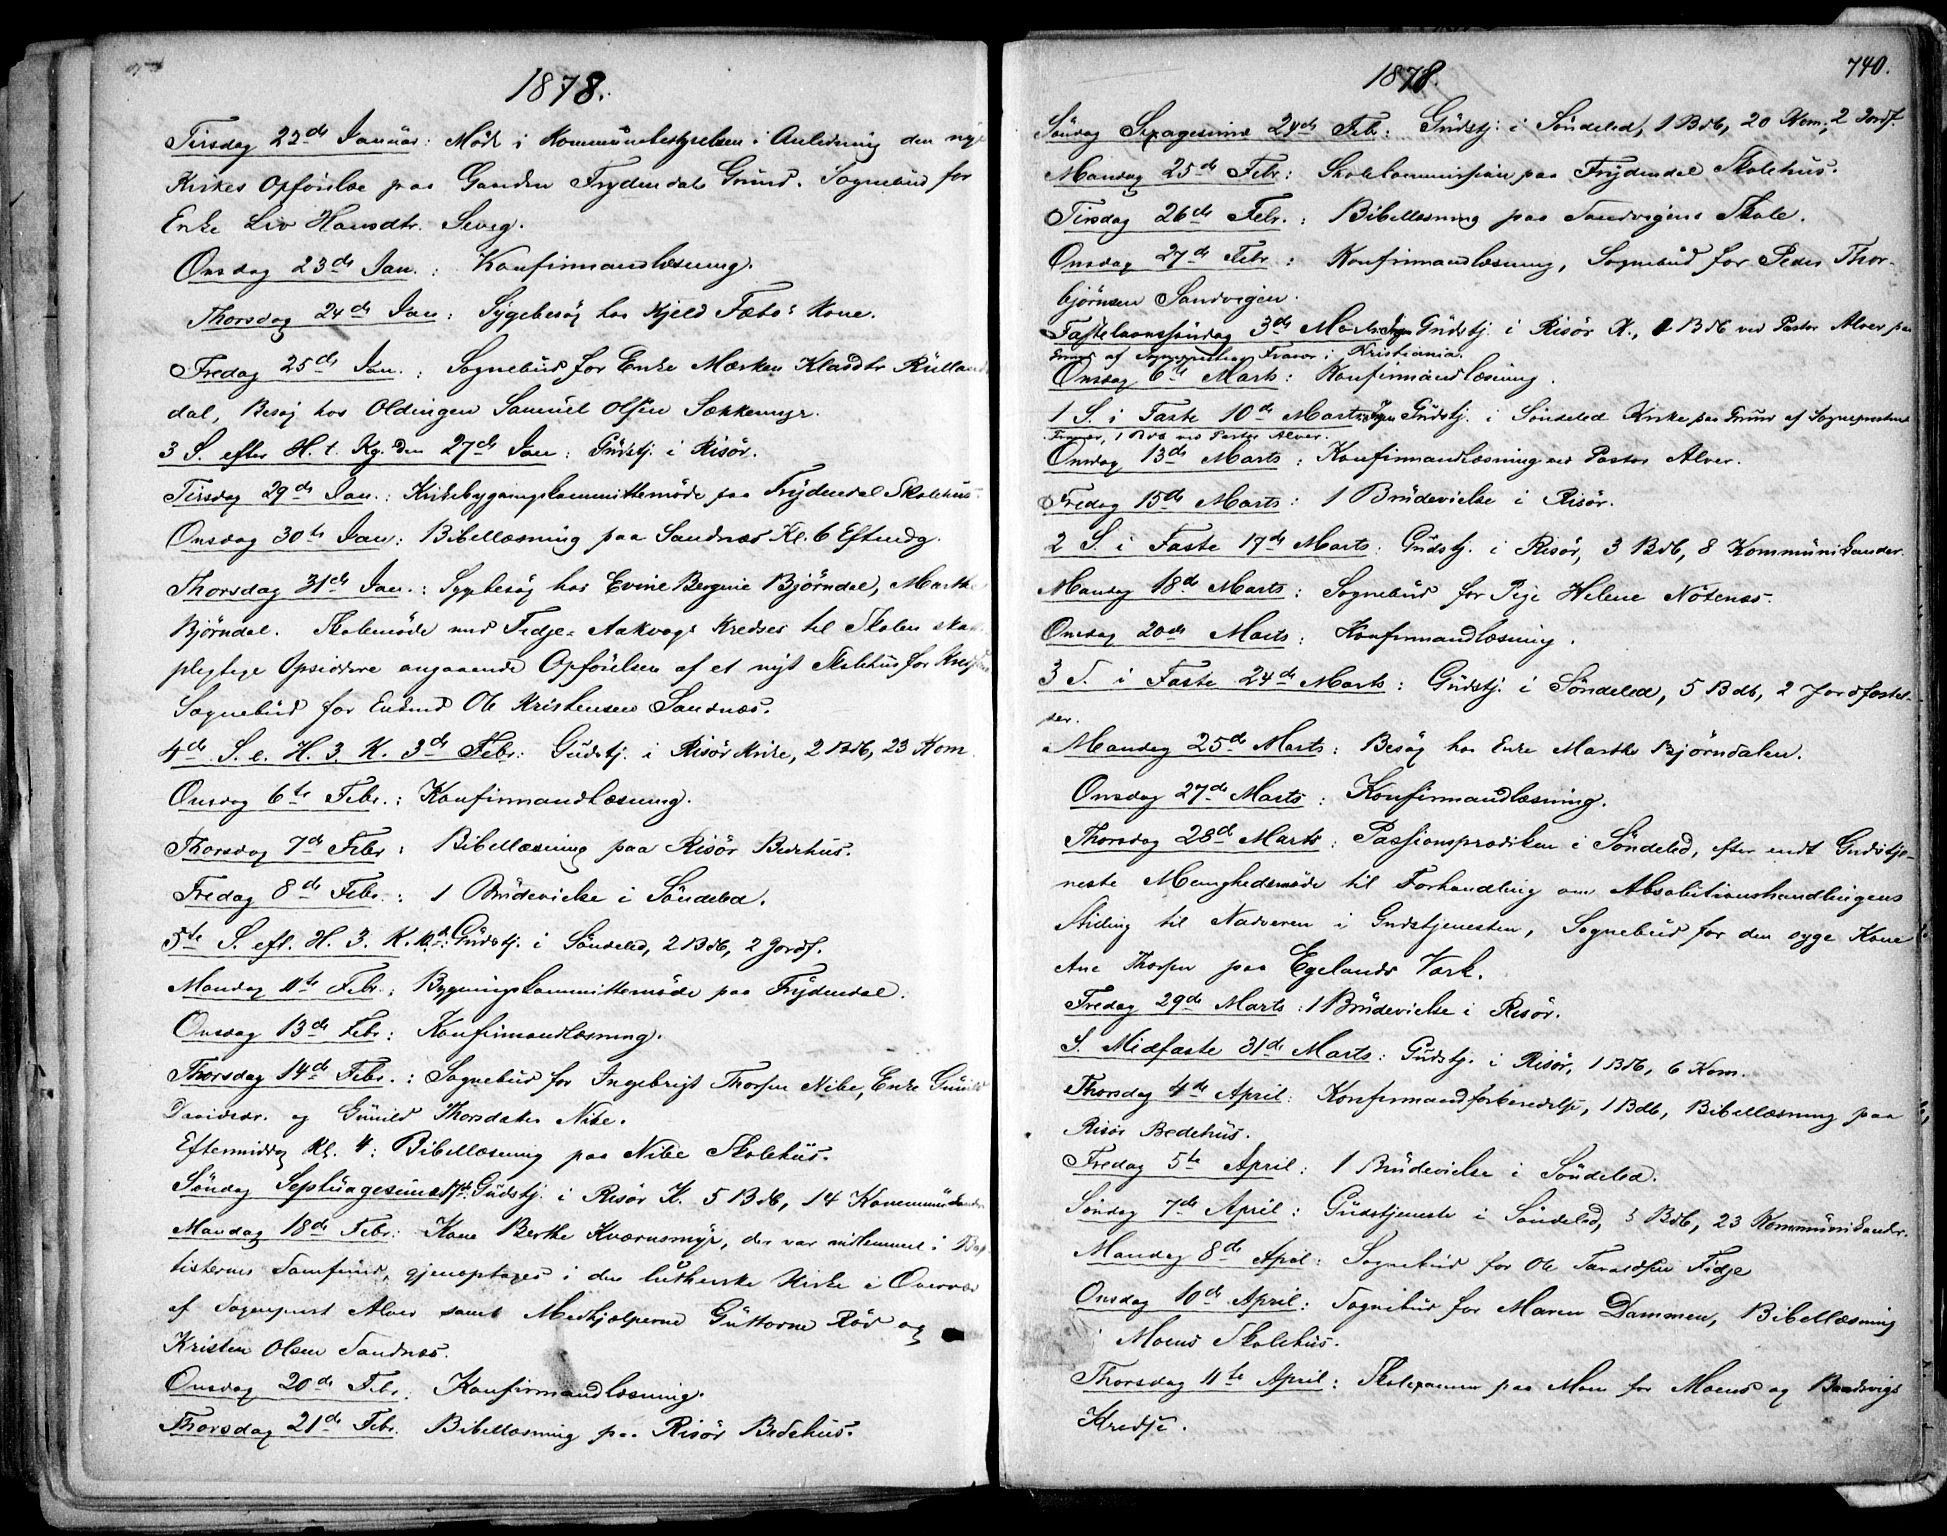 1878.
Tirsdag 22de Januar: Møde i Kommunebestyrelsen i Anledning den nye
Kirkes Opførelse paa Gaarden Frydendals Grund. Sognebud for
Enke Liv Hansdtr.
Onsdag 23de Jan.: Konfirmandlæsning.
Thorsdag 24de Jan: Sygebesøg hos Kjeld Fæbø's Kone.
Fredag 25de Jan.: Sognebud for Enke Marken
dal, Besøg hos Oldingen Samuel Olsen Sækkemyr.
3 S. efter H. t. Kg. Den 27de Jan: Gudstj. i Risør.
Tirsdag 29de Jan.: Kirkebygningskommittemøde paa Frydendal Skolehus.
Onsdag 30te Jan: Bibellæsning paa Sandnæs Kl. 6 Eftmdg.
Thorsdag 31de Jan.: Sygebesøg hos Evine Bergine Bjørndal, Marthe
Bjørndal. Skolemøde med Fidje- Aakvaags Kredses til Skolen skat
plegtige Opsiddere angaaende Opførelsen af et nyt Skolehus for Kredsen
Sognebud for Enkmd Ole Kristensen Sandnæs.
4de S. e. H. 3. K. 3de Febr: Gudstj. i Risør Kirke, 2 Bdb, 23 Kom
Onsdag 6te Febr.: Konfirmandlæsning.
Thorsdag 7de Febr: Bibellæsning paa Risør Bedehus.
Fredag 8de Febr.: 1 Brudevielse i Søndeled.
5te S. eft. H. 3. K. Gudstj. i Søndeled, 2 Bdb, 2 Jordf.
Mandag 11te Febr.: Bygningskommittemøde paa Frydendal.
Onsdag 13de Febr: Konfirmandlæsning.
Thorsdag 14de Febr.: Sognebud for Ingebrigt Thorsen Nibe, Enke Gunild
Davidsdr. og Gunild Thorsdatter Nibe.
Eftermiddag Kl. 4: Bibellæsning paa Nibe Skolehus.
Søndag Septuagesima 17de Gudstj. i Risør K. 5 Bdb, 14 Kommunikanter
Mandag 18de Febr: Kone Berthe Kværnsmyr, der var indlemmet i Bap
tisternes Samfund, gjenoptages i den lutherske Kirke i Overvær
af Sognepræst Alver samt Medhjælperne Guttorm Rød og
Kristen Olsen Sandnæs.
Onsdag 20de Febr. Konfirmandlæsning.
Thorsdag 21de Febr. Bibellæsning paa Risør Bedehus.
1878.
740.
Søndag Sexagesima 24de Feb: Gudstj. i Søndeled, 1 Bdb, 20 Kom, 2 Jordf.
Mandag 25de Febr: Skolekommission paa Frydendal Skolehus.
Tirsdag 26de Febr.: Bibellæsning paa Sandvigens Skole.
Onsdag 27de Febr: Konfirmandlæsning, Sognebud for Peder Thor-
bjørnsen Sandvigen.
Fastelavnssøndag 3de Marts Ingen Gudstj. i Risør K., 1 Bdb ved Pastor Alver paa
Grund af Sognepræstens Fravær i Kristiania.
Onsdag 6te Marts: Konfirmandlæsning.
1 S. i Faste 10de Marts Ingen Gudstj. i Søndeled Kirke paa Grund af Sognepræstens
Fravær, 1 Bdb ved Pastor Alver.
Onsdag 13de Marts: Konfirmandlæsning ved Pastor Alver.
Fredag 15de Marts: 1 Brudevielse i Risør.
2 S. i Faste 17de Marts: Gudstj. i Risør, 3 Bdb, 8 Kommunikanter.
Mandag 18de Marts: Sognebud for Pige Helene Nøtenæs.
Onsdag 20de Marts: Konfirmandlæsning.
3 S. i Faste 24de Marts: Gudstj. i Søndeled, 5 Bdb, 2 Jordfæstel-
ser.
Mandag 25de Marts: Besøg hos Enke Marthe Bjørndalen.
Onsdag 27de Marts: Konfirmandlæsning.
Thorsdag 28de Marts: Passionsprædiken i Søndeled, efter endt Gudstje-
neste Menighedsmøde til Forhandling om Absolutionshandlingens
Stilling til Nadveren i Gudstjenesten, Sognebud for den syge Kone
Ane Thorsen paa Egelands Værk.
Fredag 29de Marts: 1 Brudevielse i Risør.
S. Midfaste 31de Marts: Gudstj. i Risør, 1 Bdb, 6 Kom.
Thorsdag 4de April: Konfirmandforberedelse, 1 Bdb, Bibellæsning paa
Risør Bedehus.
Fredag 5te April: 1 Brudevielse i Søndeled.
Søndag 7de April: Gudstjeneste i Søndeled, Bdb, 23 Kommunikanter.
Mandag 8de April: Sognebud for Ole Taraldsen Fidje
Onsdag 10de April: Sognebud for Maren Dammen, Bibellæsning
i Moens Skolehus.
Thorsdag 11te April: Skolexamen paa Moen for Moens og
Kredse.